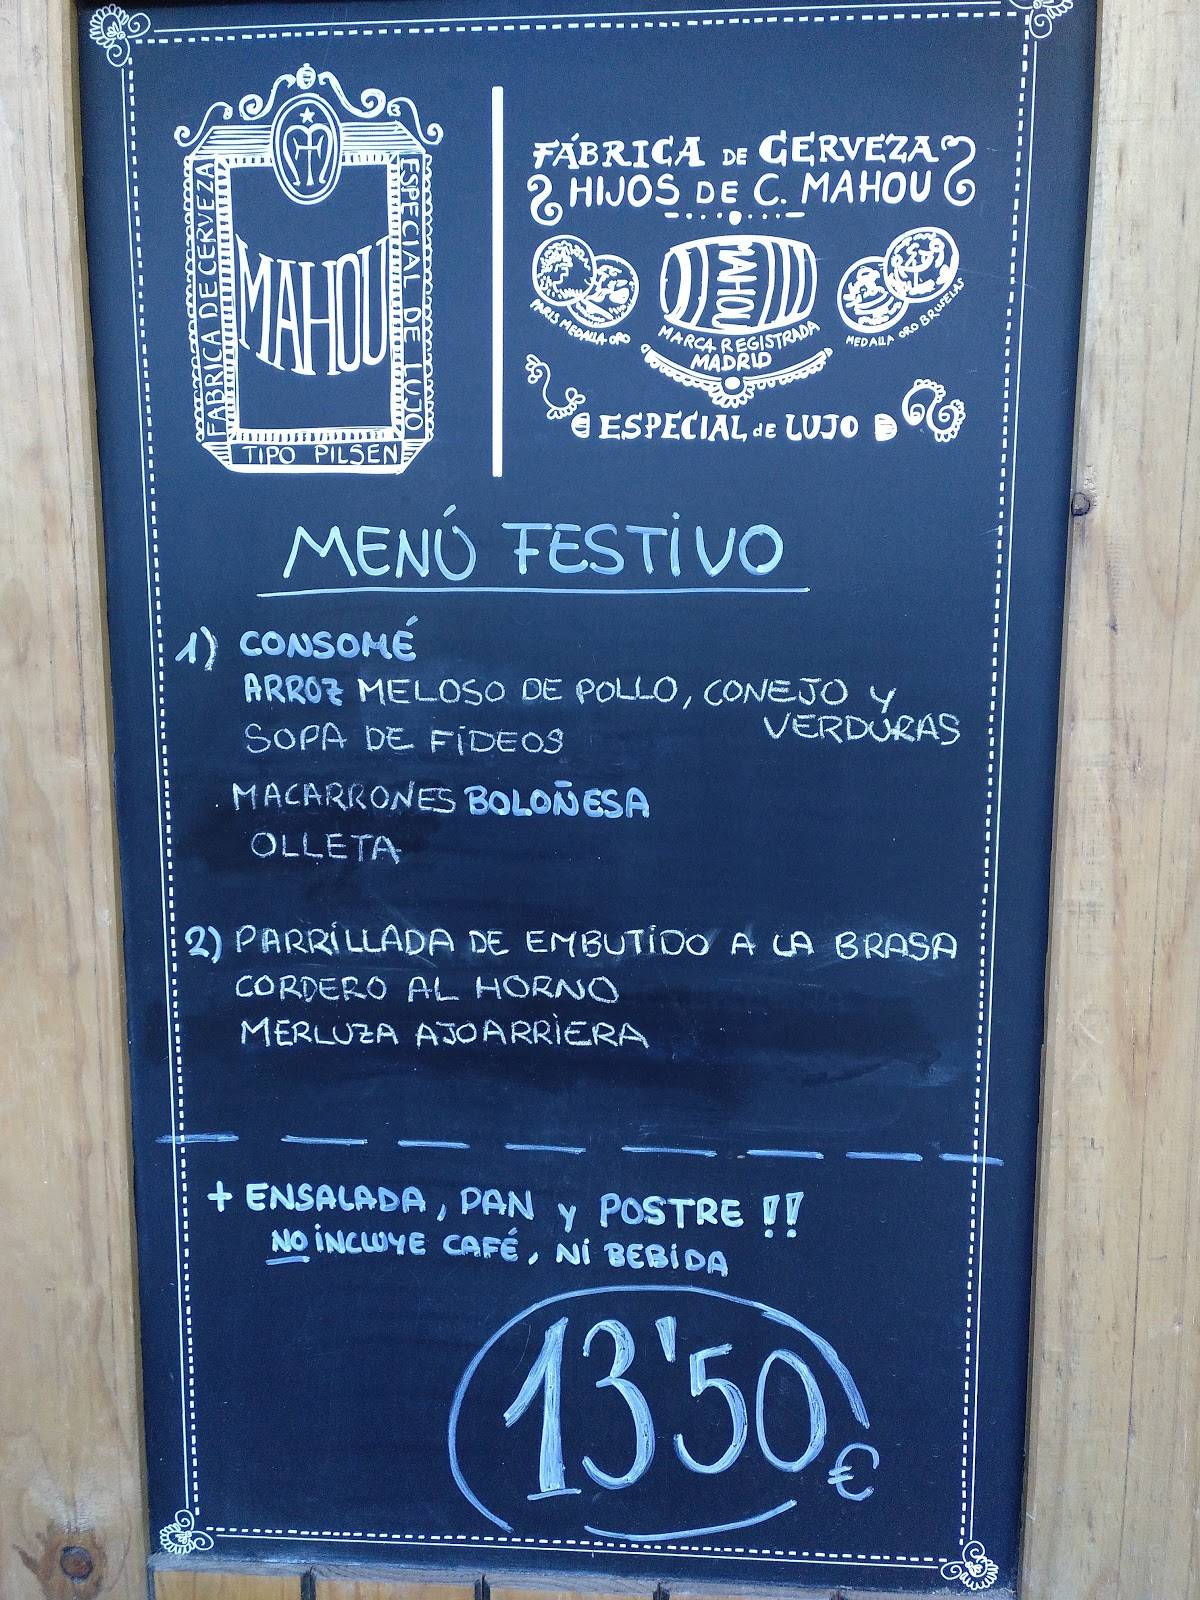 FABRICA DE CERVEZA
MAHOU
ESPECIAL DE LUJO
TIPO PILSEN
FÁBRICA DE CERVEZA
HIJOS DE C. MAHOU
MAHOU
PARIS MEDALLA ORO
MARCA REGISTRADA
MEDALLA ORO BRUSELAS
MADRID
ESPECIAL DE LUJO
MENÚ FESTIVO
1) CONSOMÉ
ARROZ MELOSO DE POLLO, CONEJO Y
VERDURAS
SOPA DE FIDEOS
MACARRONES BOLOÑESA
OLLETA
2) PARRILLADA DE EMBUTIDO A LA BRASA
CORDERO AL HORNO
MERLUZA AJOARRIERA
+ ENSALADA, PAN Y POSTRE !!
NO INCLUYE CAFÉ, NI BEBIDA
13'50 €